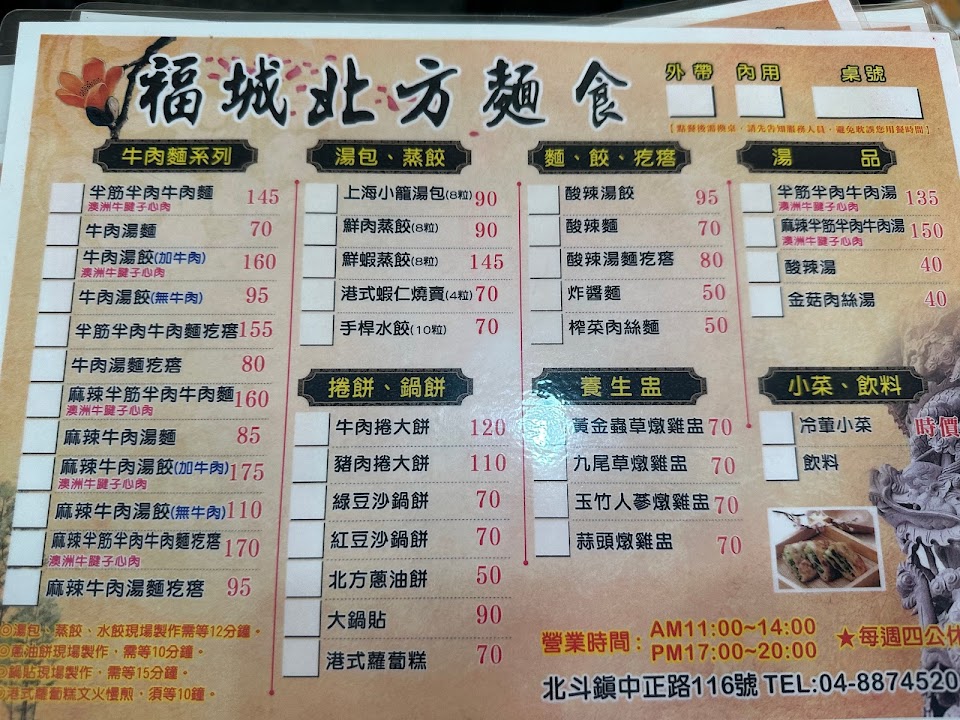 福城北方麵食
外帶 內用 桌號
【點餐後需換桌,請先告知服務人員,避免耽誤您用餐時間】
牛肉麵系列
半筋半肉牛肉麵 145
澳洲牛腱子心肉
牛肉湯麵 70
牛肉湯餃(加牛肉) 160
澳洲牛腱子心肉
牛肉湯餃(無牛肉) 95
半筋半肉牛肉麵疙瘩 155
牛肉湯麵疙瘩 80
麻辣半筋半肉牛肉麵 160
澳洲牛腱子心肉
麻辣牛肉湯麵 85
麻辣牛肉湯餃(加牛肉) 175
澳洲牛腱子心肉
麻辣牛肉湯餃(無牛肉) 110
麻辣半筋半肉牛肉麵疙瘩 170
澳洲牛腱子心肉
麻辣牛肉湯麵疙瘩 95
湯包、蒸餃
上海小籠湯包(8粒) 90
鮮肉蒸餃(8粒) 90
鮮蝦蒸餃(8粒) 145
港式蝦仁燒賣(4粒) 70
手桿水餃(10粒) 70
捲餅、鍋餅
牛肉捲大餅 120
豬肉捲大餅 110
綠豆沙鍋餅 70
紅豆沙鍋餅 70
北方蔥油餅 50
大鍋貼 90
港式蘿蔔糕 70
麵、餃、疙瘩
酸辣湯餃 95
酸辣麵 70
酸辣湯麵疙瘩 80
炸醬麵 50
榨菜肉絲麵 50
養生盅
黃金蟲草燉雞盅 70
九尾草燉雞盅 70
玉竹人蔘燉雞盅 70
蒜頭燉雞盅 70
湯品
半筋半肉牛肉湯 135
澳洲牛腱子心肉
麻辣半筋半肉牛肉湯 150
澳洲牛腱子心肉
酸辣湯 40
金菇肉絲湯 40
小菜、飲料
冷葷小菜 時價
飲料
◎湯包、蒸餃、水餃現場製作需等12分鐘。
◎蔥油餅現場製作,需等10分鐘。
◎鍋貼現場製作,需等15分鐘。
◎港式蘿蔔糕文火慢煎,須等10分鐘。
營業時間: AM11:00~14:00
PM17:00~20:00
★每週四公休
北斗鎮中正路116號 TEL:04-8874520